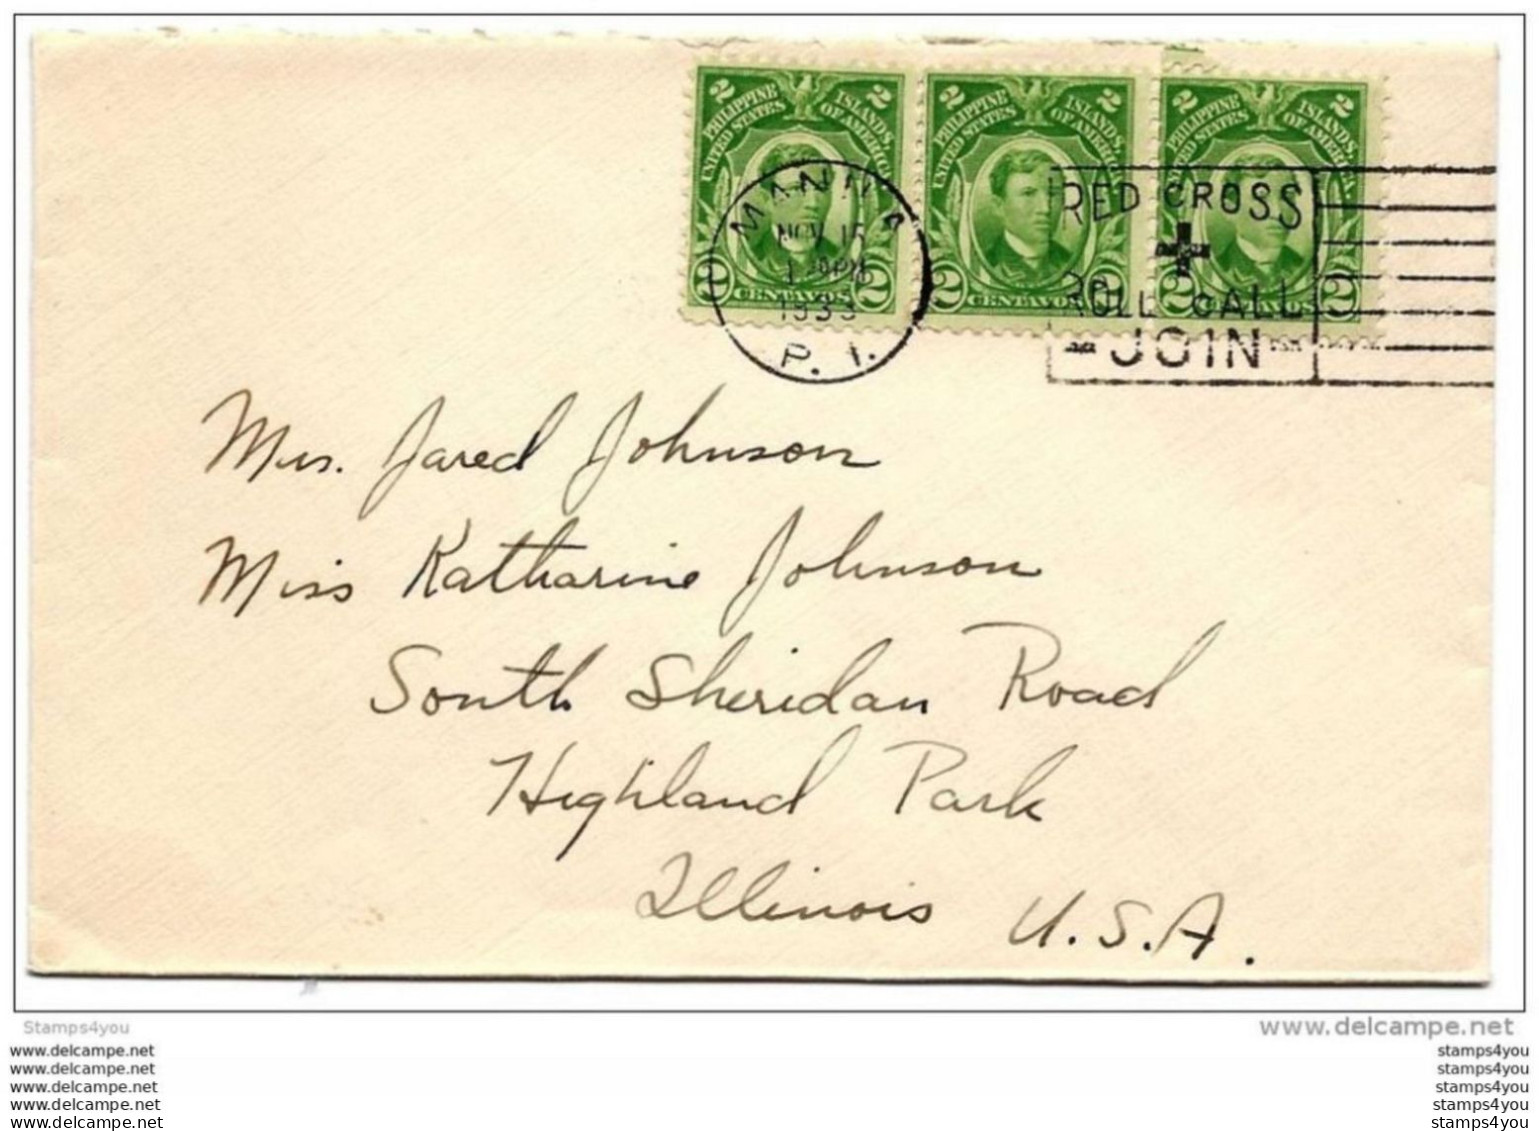 2 PHILIPPINE ISLANDS 2
UNITED STATES OF AMERICA
2 CENTAVOS 2
2 PHILIPPINE ISLANDS 2
UNITED STATES OF AMERICA
2 CENTAVOS 2
2 PHILIPPINE ISLANDS 2
UNITED STATES OF AMERICA
2 CENTAVOS 2
MANILA
NOV 15
1933
P. I.
RED CROSS
ROLL CALL
JOIN
Mrs. Jared Johnson
Miss Katharine Johnson
South Sheridan Road
Highland Park
Illinois U.S.A.
Stamps4you
www.delcampe.net
www.delcampe.net
www.delcampe.net
www.delcampe.net
www.delcampe.net
www.delcampe.net
stamps4you
stamps4you
stamps4you
stamps4you
stamps4you